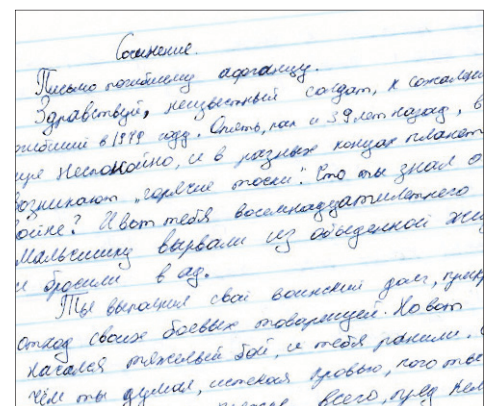 Сочинение.
Письмо погибшему афганцу.
Здравствуй, неизвестный солдат, к сожален
погибший в 1979 году. Опять, как и 39 лет назад, в
мире неспокойно, и в разных концах планет
возникают „горячие точки“. Что ты знал о
войне? И вот тебя восемнадцатилетнего
мальчишку вырвали из обыденной жиз
и бросили в ад.
Ты выполнил свой воинский долг, прикр
отход своих боевых товарищей. Но вот
начался тяжелый бой, и тебя ранили.
чём ты думал, истекая кровью, кого ты
всего, пред нем